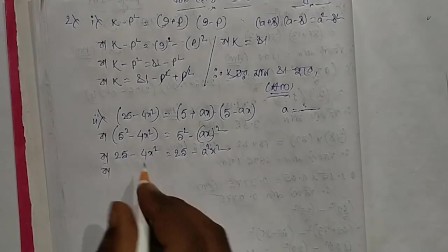 2) i) K - P² = (9+P) (9-P) (a+b)(a-b) = a²-b²
বা K - P² = (9)² - (P)²
বা K - P² = 81 - P²
বা K = 81 - P² + P²
∴ K এর মান 81 হবে,
ii) (25 - 4x²) = (5 + ax) (5 - ax) a
বা (5² - 4x²) = 5² - (ax)²
বা 25 - 4x² = 25 - a²x²
বা